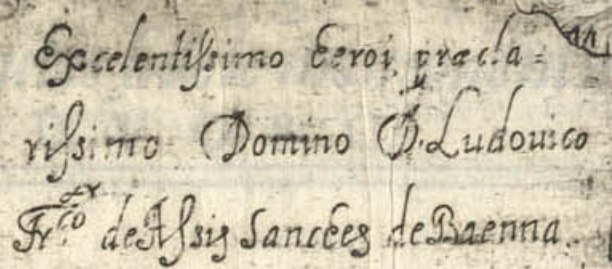 Excelentissimo heroi præcla=
rissimo Domino D. Ludovico
Fr.co de Assis Sanches de Baenna.